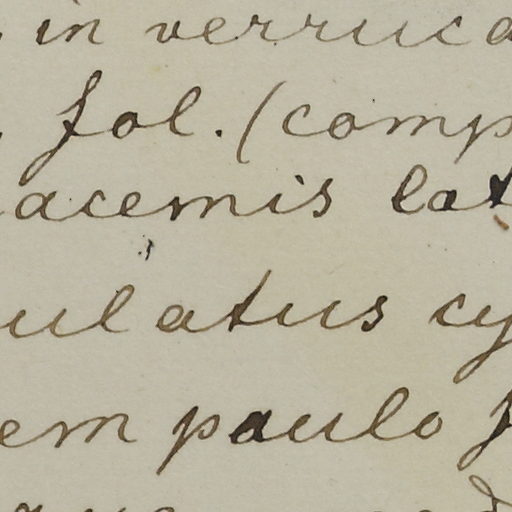 in verruca
fol. (comp
acemis lat
ulatus cy
em paulo